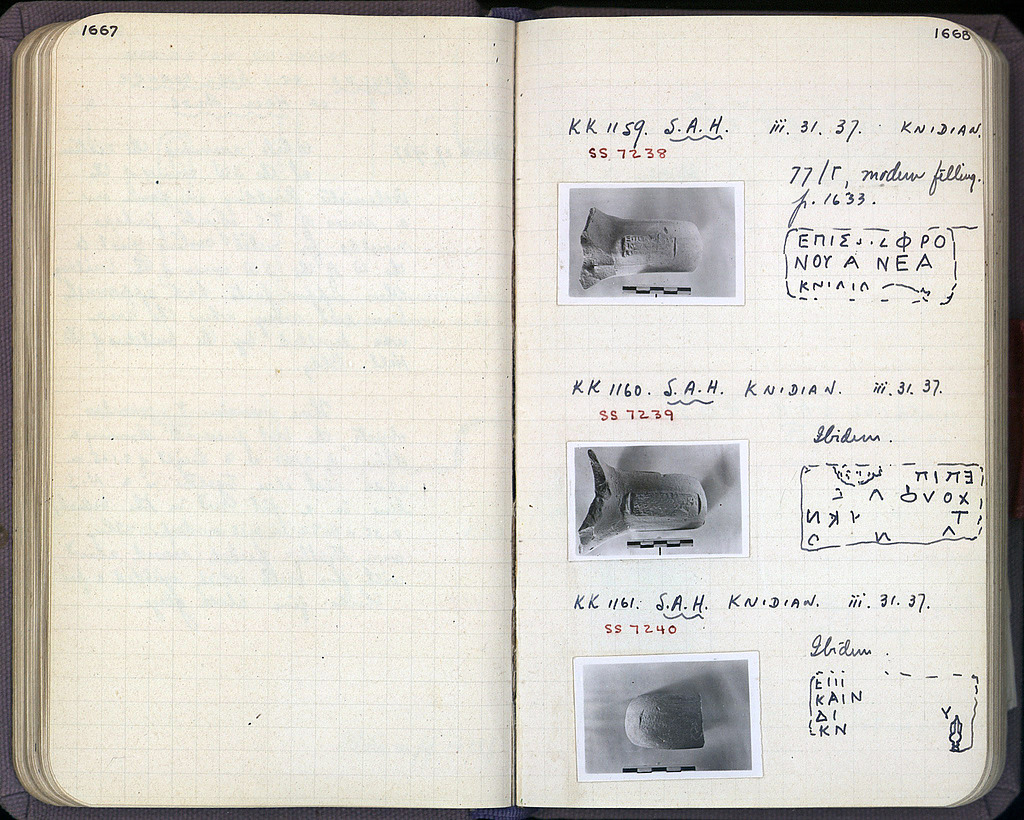 1667
1668
KK 1159. S.A.H. iii. 31. 37. KNIDIAN.
SS 7238
77/Γ, modern filling.
p. 1633.
ΕΠΙΣ ΦΡΟ
ΝΟΥ Α ΝΕΑ
ΚΝΙΔΙ
KK 1160. S.A.H. KNIDIAN. iii. 31. 37.
SS 7239
Ibidem.
ΕΠΙΠ
ΧΟΥΦ
KK 1161. S.A.H. KNIDIAN. iii. 31. 37.
SS 7240
Ibidem.
ΕΠΙ
ΚΑΙΝ
ΔΙ Υ
ΚΝ